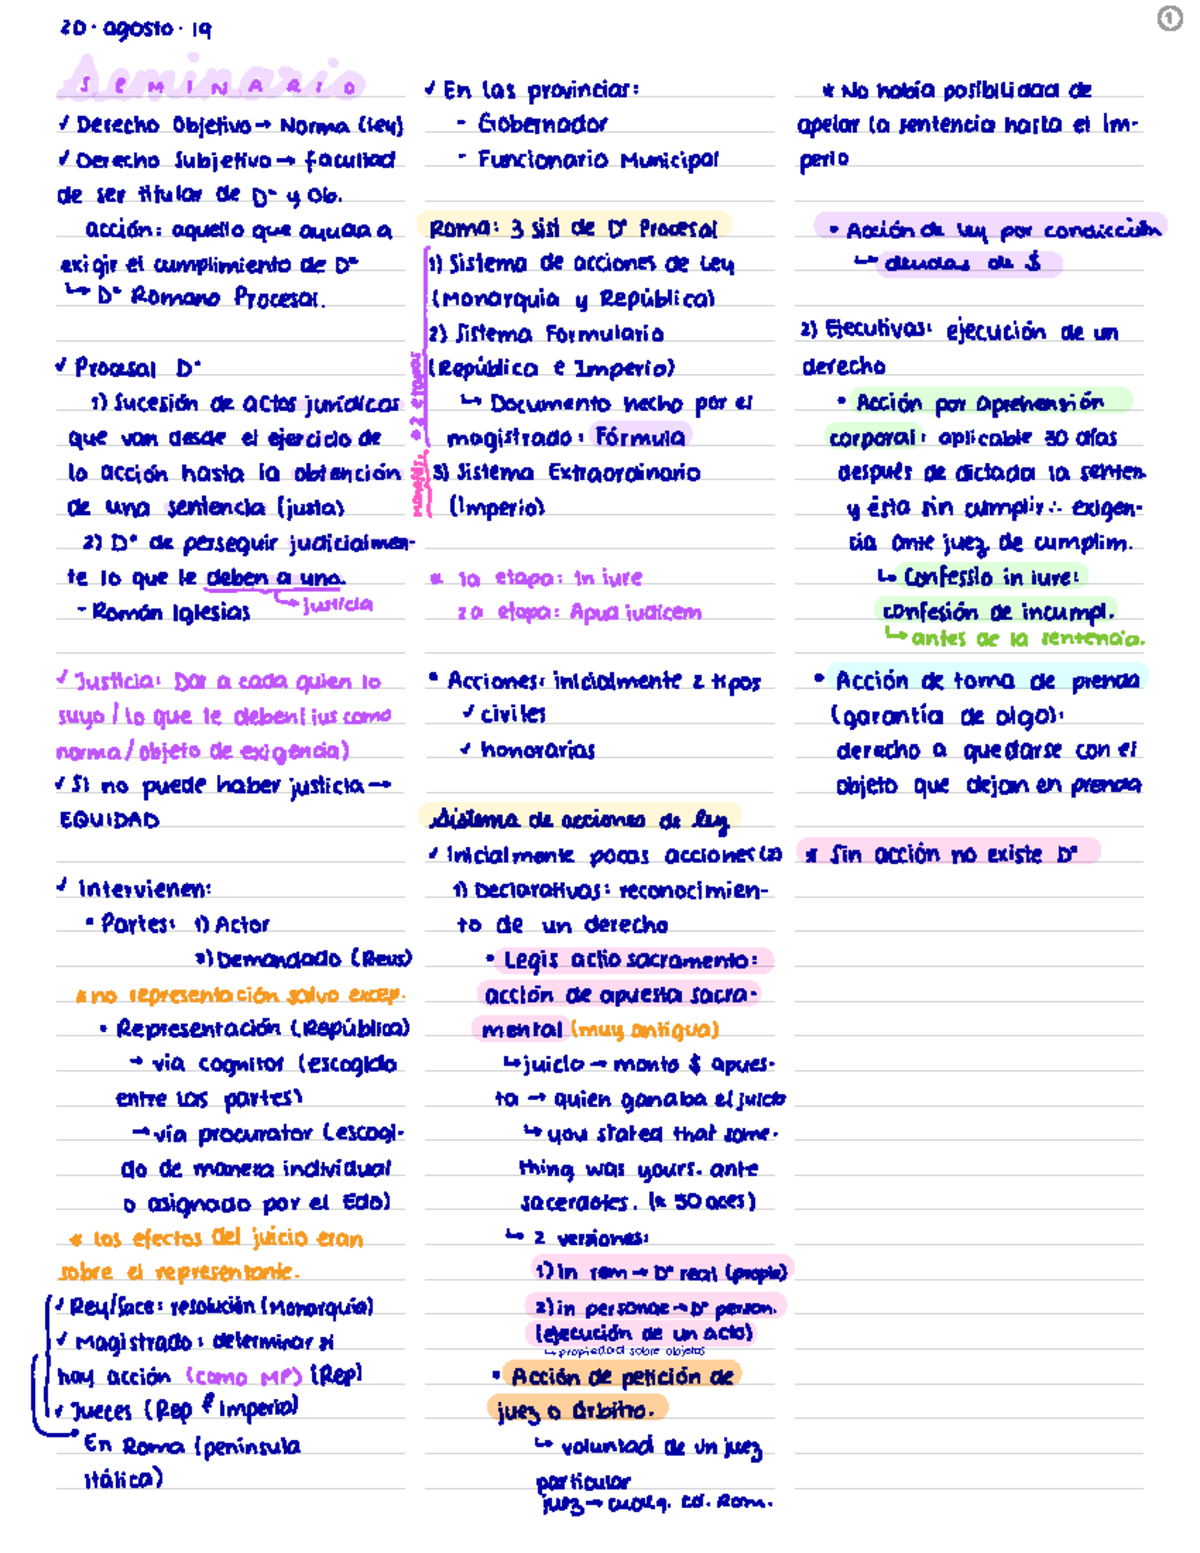 20 · agosto · 19
1
Seminario
S E M I N A R I O
✓ Derecho Objetivo → Norma (ley)
✓ Derecho Subjetivo → facultad
de ser titular de D° y Ob.
acción: aquello que ayuda a
exigir el cumplimiento de D°
↳ D° Romano Procesal.
✓ Procesal D°
1) Sucesión de actos jurídicos
que van desde el ejercicio de
la acción hasta la obtención
de una sentencia (justa)
2) D° de perseguir judicialmen-
te lo que le deben a uno.
↳ justicia
- Román Iglesias
✓ Justicia: Dar a cada quien lo
suyo / lo que le deben (ius como
norma / objeto de exigencia)
✓ Si no puede haber justicia →
EQUIDAD
✓ Intervienen:
• Partes: 1) Actor
2) Demandado (Reus)
* no representación salvo excep.
• Representación (República)
→ vía cognitor (escogido
entre las partes)
→ vía procurator (escogi-
do de manera individual
o asignado por el Edo)
* los efectos del juicio eran
sobre el representante.
✓ Rey/Sace: resolución (Monarquía)
✓ Magistrado: determinar si
hay acción (como MP) (Rep)
✓ Jueces (Rep e Imperio)
En Roma (península
itálica)
✓ En las provincias:
- Gobernador
- Funcionario Municipal
Roma: 3 sist de D° Procesal
1) Sistema de acciones de Ley
(Monarquía y República)
2) Sistema Formulario
(República e Imperio)
↳ Documento hecho por el
magistrado: Fórmula
3) Sistema Extraordinario
(Imperio)
* 2 etapas
* 1a etapa: In iure
2a etapa: Apud iudicem
• Acciones: inicialmente 2 tipos
✓ civiles
✓ honorarias
Sistema de acciones de ley
✓ Inicialmente pocas acciones (2)
1) Declarativas: reconocimien-
to de un derecho
• Legis actio sacramento:
acción de apuesta sacra-
mental (muy antigua)
↳ juicio → monto $ apues-
ta → quien ganaba el juicio
↳ you stated that some-
thing was yours. ante
sacerdotes. (x 50 aces)
↳ 2 versiones:
1) in rem → D° real (propie)
2) in personae → D° person.
(ejecución de un acto)
↳ propiedad sobre objetos
• Acción de petición de
juez o árbitro.
↳ voluntad de un juez
particular
juez → cualq. cd. Rom.
* No había posibilidad de
apelar la sentencia hasta el Im-
perio
• Acción de ley por condicción
↳ deudas de $
2) Ejecutivas: ejecución de un
derecho
• Acción por aprehensión
corporal: aplicable 30 días
después de dictada la senten.
y ésta sin cumplir ∴ exigen-
cia ante juez de cumplim.
↳ Confessio in iure:
confesión de incumpl.
↳ antes de la sentencia.
• Acción de toma de prenda
(garantía de algo):
derecho a quedarse con el
objeto que dejan en prenda
* Sin acción no existe D°